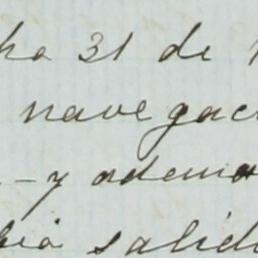 ha 31 de
navegac
- y ademas
bia salid